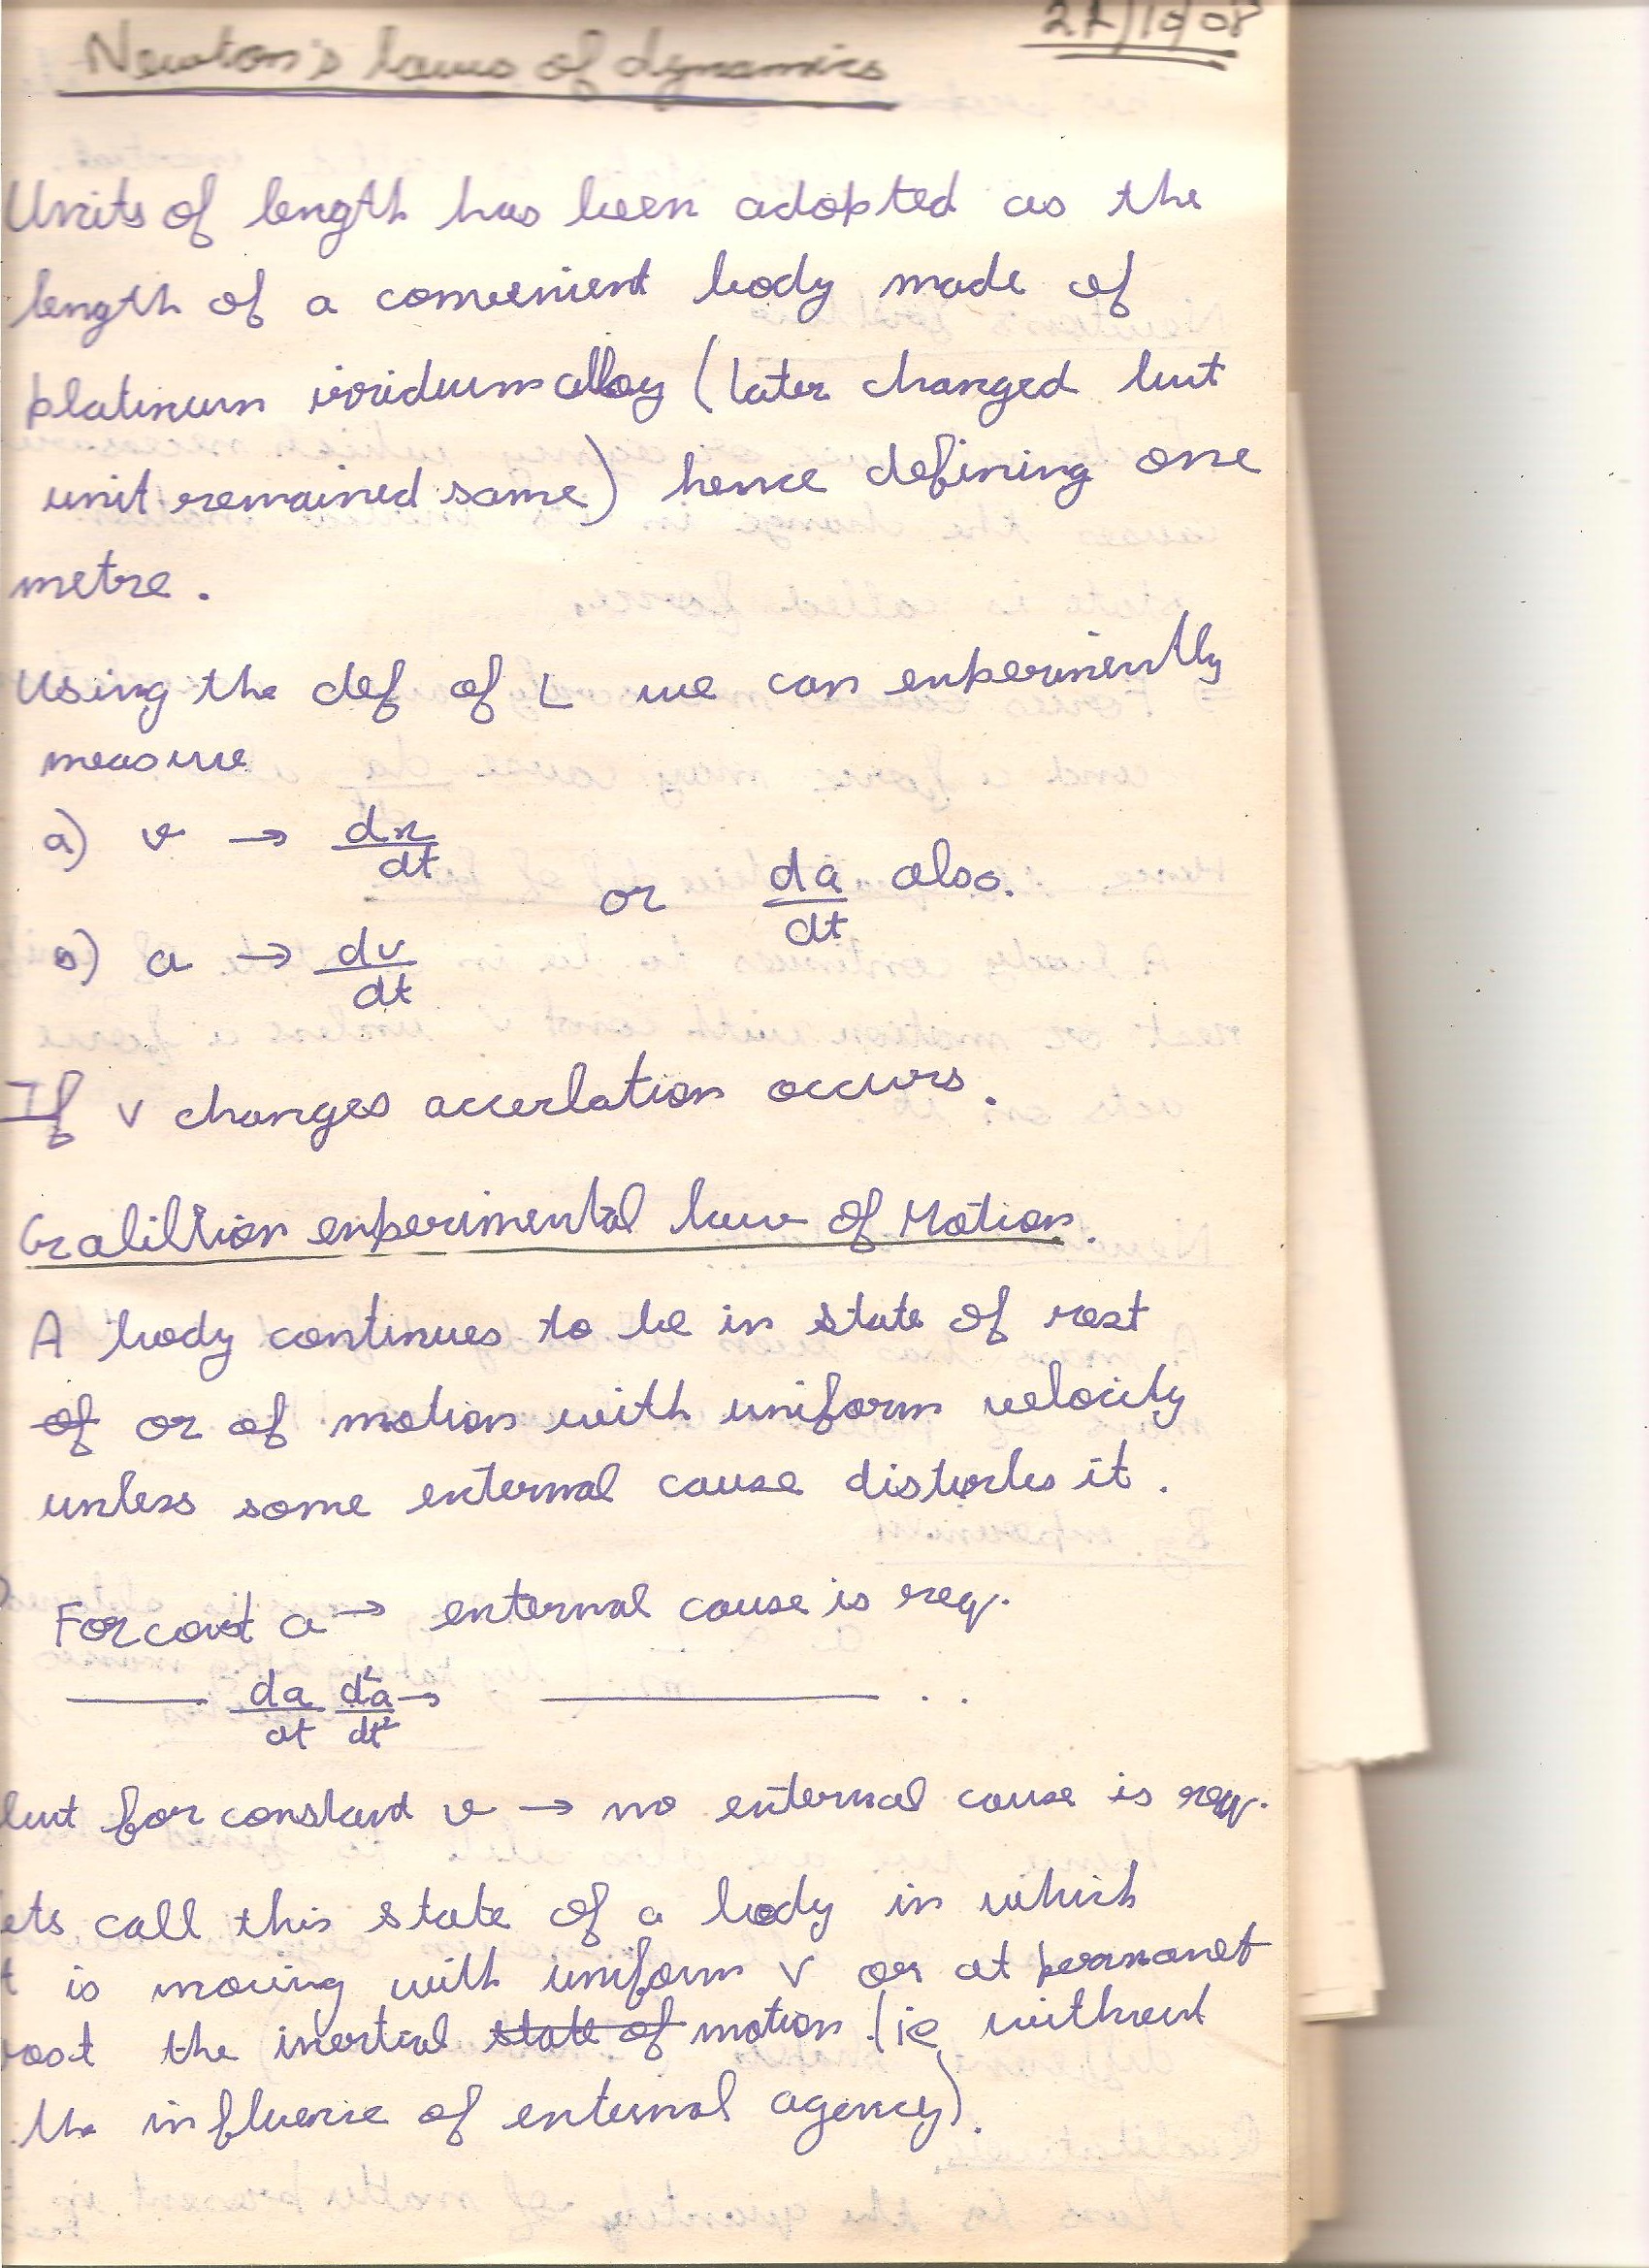 Newton's laws of dynamics
Units of length has been adopted as the
length of a convenient body made of
platinum irridium alloy (later changed but
unit remained same) hence defining one
metre.
Using the def of L we can experimently
measure
a) v → dx/dt
or da/dt also.
b) a → dv/dt
If v changes accerlation occurs.
Galiltion experimental law of Motion.
A body continues to be in state of rest
of or of motion with uniform velocity
unless some external cause disturbs it.
For const a → external cause is req.
—— da/dt d²a/dt² → ———— . .
but for constant v → no external cause is req.
ets call this state of a body in which
t is moving with uniform v or at permanet
rest the inertial state of motion (ie without
the influence of external agency).